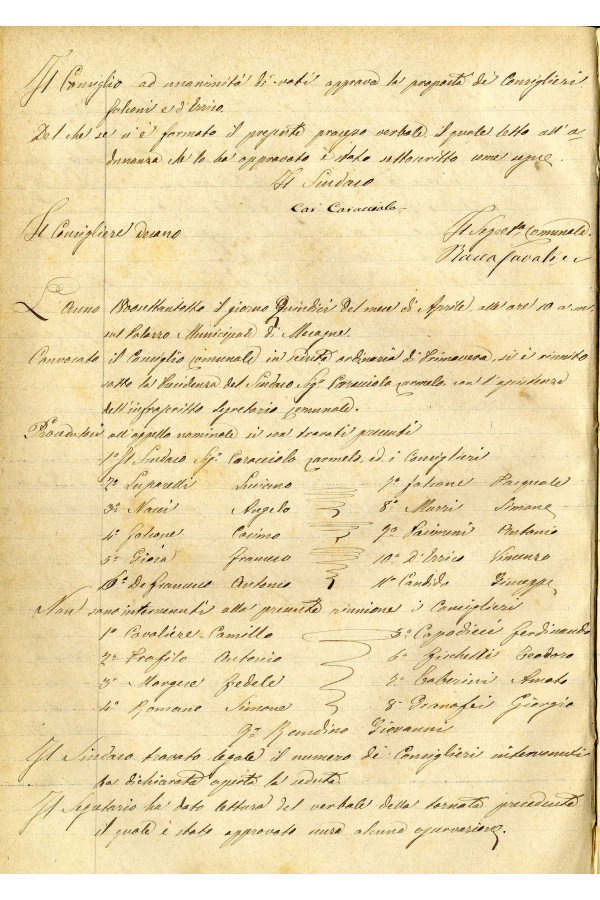 Il Consiglio ad unanimità di voti approva la proposta dei Consiglieri
Falconi e d'Errico.
Del che se n'è formato il presente processo verbale, il quale letto all'a-
dunanza che lo ha approvato è stato sottoscritto come segue
Il Sindaco
Car Caracciolo
Il Consigliere decano
Il Segret.o Comunale
L'Anno 1800ottantotto il giorno Quindici del mese di Aprile, alle ore 10 a.m.
sul Palazzo Municipale di Mesagne.
Convocato il Consiglio comunale in seduta ordinaria di Primavera, si è riunito
sotto la Presidenza del Sindaco Sig. Caracciolo Carmelo con l'assistenza
dell'infrascritto Segretario comunale.
Procedutosi all'appello nominale si son trovati presenti
1o Il Sindaco Sig. Caracciolo Carmelo, ed i Consiglieri
2o Luparelli 7o Falcone Pasquale
3o Nacci Angelo 8o Murri Simone
4o Falcone Cosimo 9o Antonio
5o Gioia Francesco 10o D'Errico Vincenzo
6o De Francesco Antonio 11o Candido Giuseppe
Non sono intervenuti alla presente riunione i Consiglieri
1o Cavaliere Camillo 5o Capodieci Ferdinando
2o Profilo Antonio 6o Teodoro
3o Morgese Fedele 7o Amato
4o Romano Simone 8o Granafei Giorgio
9o Giovanni
Il Sindaco trovato legale il numero dei Consiglieri intervenuti
ha dichiarata aperta la seduta
Il Segretario ha dato lettura del verbale della tornata precedente
il quale è stato approvato senza alcuna osservazione.